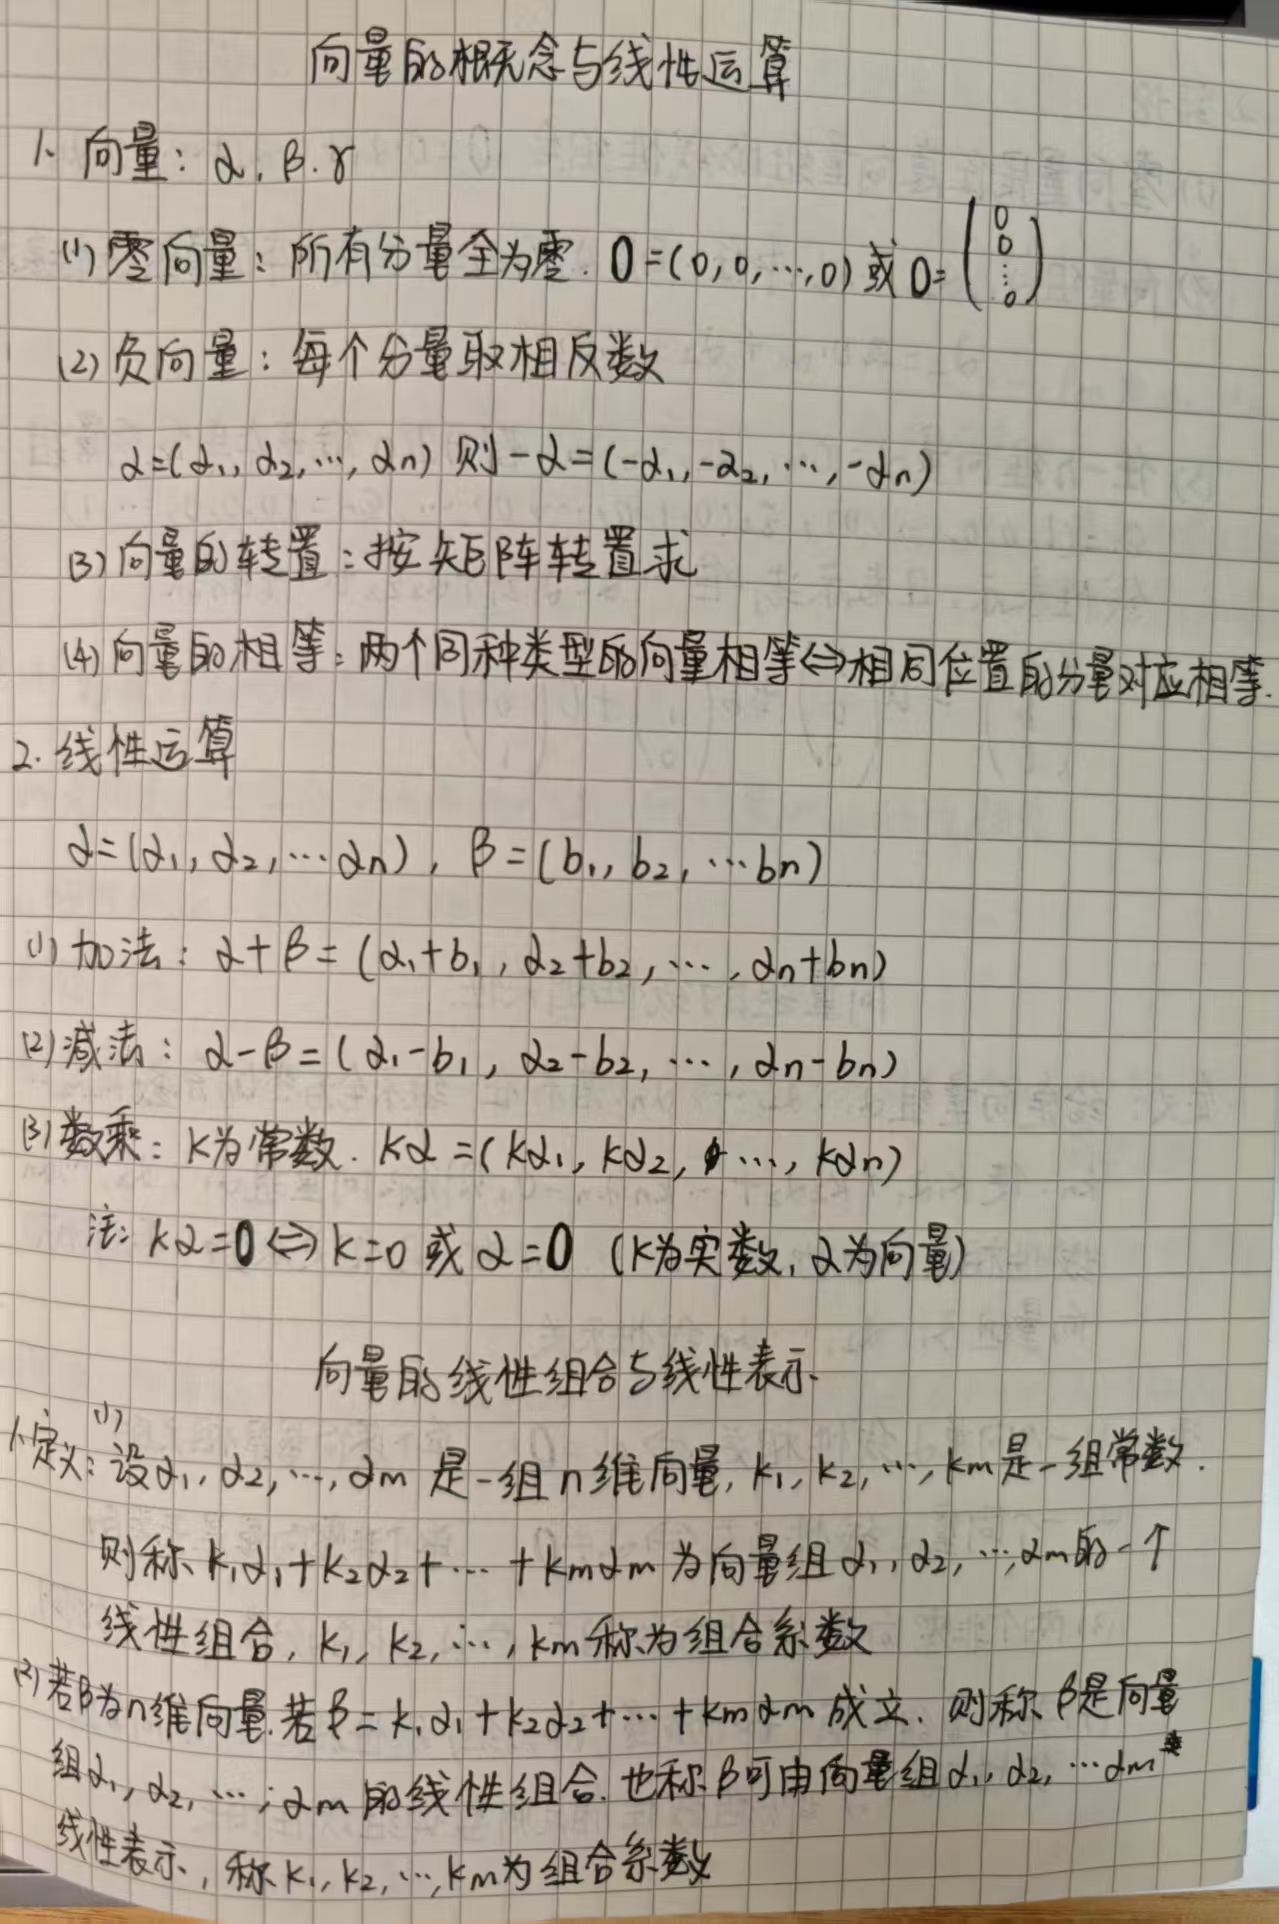 向量的概念与线性运算
1. 向量：α, β. γ
(1) 零向量：所有分量全为零. 0=(0,0,…,0) 或 0=(0 0 ⋮ 0)
(2) 负向量：每个分量取相反数
α=(α₁, α₂, …, αn) 则 -α=(-α₁, -α₂, …, -αn)
(3) 向量的转置：按矩阵转置求
(4) 向量的相等：两个同种类型的向量相等⇔相同位置的分量对应相等.
2. 线性运算
α=(α₁, α₂, …αn), β=(b₁, b₂, …bn)
(1) 加法：α+β=(α₁+b₁, α₂+b₂, …, αn+bn)
(2) 减法：α-β=(α₁-b₁, α₂-b₂, …, αn-bn)
(3) 数乘：k为常数. kα=(kα₁, kα₂, …, kαn)
注: kα=0⇔k=0 或 α=0 (k为实数, α为向量)
向量的线性组合与线性表示
1. 定义：(1) 设α₁, α₂, …, αm 是一组n维向量, k₁, k₂, …, km是一组常数.
则称 k₁α₁+k₂α₂+…+kmαm 为向量组α₁, α₂, …, αm的一个
线性组合, k₁, k₂, …, km称为组合系数
(2) 若β为n维向量.若β=k₁α₁+k₂α₂+…+kmαm 成立. 则称β是向量
组α₁, α₂, …, αm 的线性组合.也称β可由向量组α₁, α₂, …αm
线性表示, 称k₁, k₂, …, km为组合系数